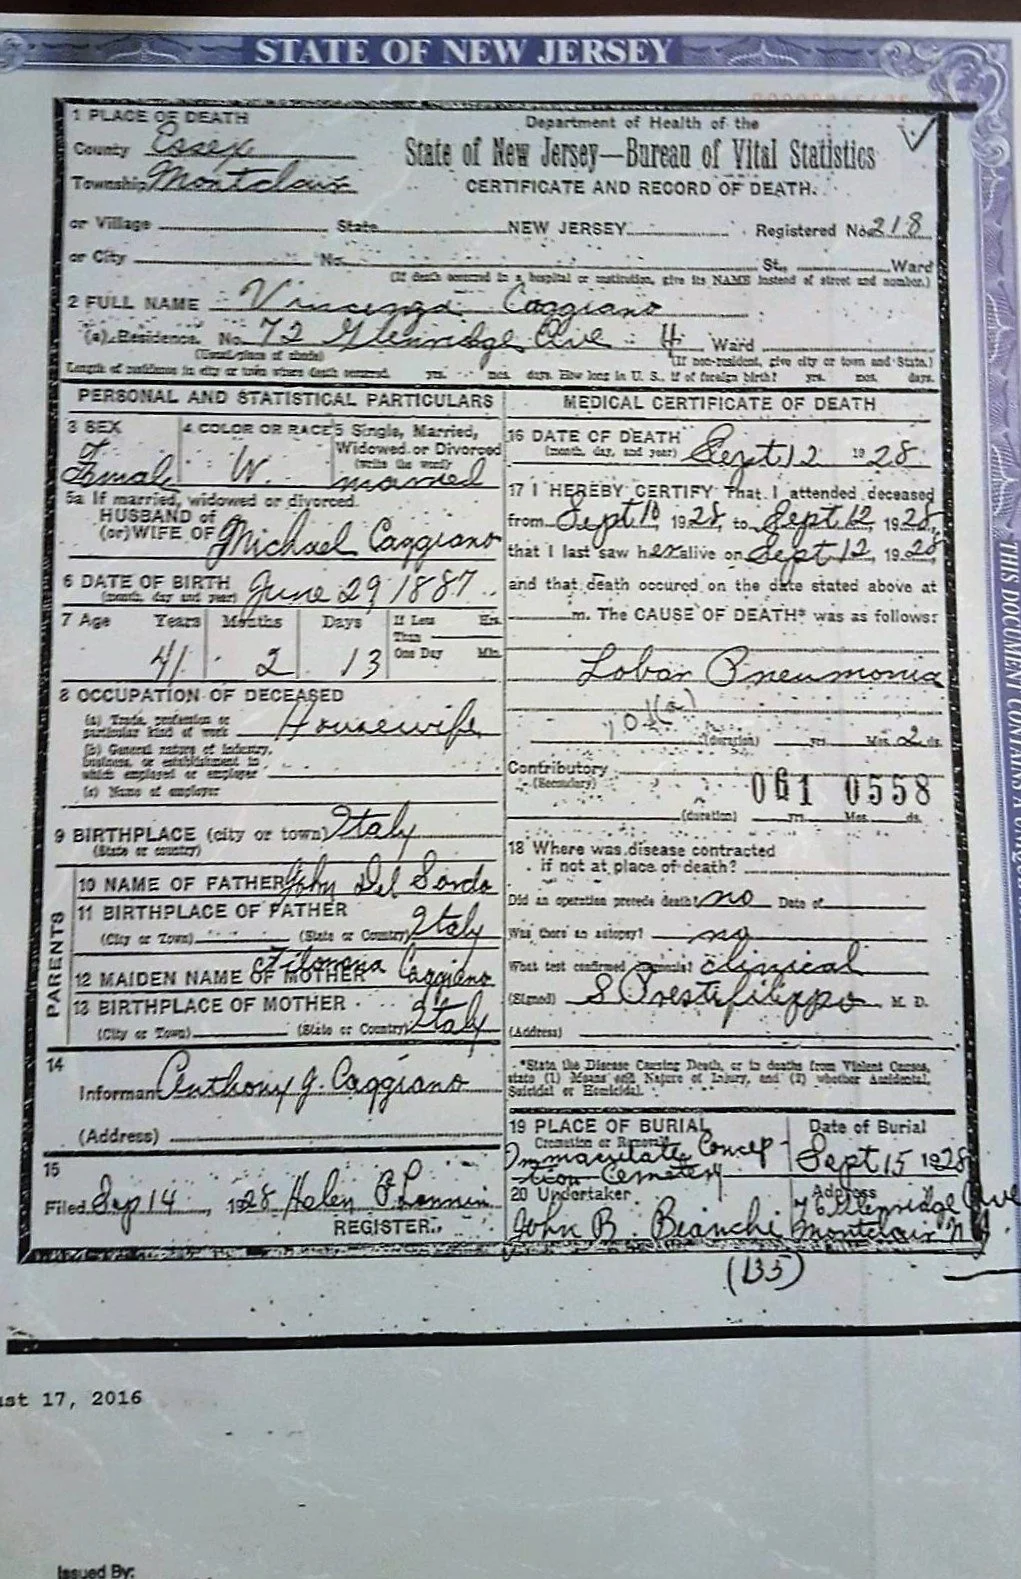 STATE OF NEW JERSEY
1 PLACE OF DEATH
County Essex
Township Montclair
Department of Health of the
State of New Jersey—Bureau of Vital Statistics
CERTIFICATE AND RECORD OF DEATH.
or Village State NEW JERSEY Registered No. 218
or City No. St., Ward
(If death occurred in a hospital or institution, give its NAME instead of street and number.)
2 FULL NAME Vincenza Caggiano
(a) Residence. No. 72 Glenridge Ave Ward
(Usual place of abode) (If non-resident, give city or town and State.)
Length of residence in city or town where death occurred yrs. mos. days. How long in U. S., if of foreign birth? yrs. mos. days.
PERSONAL AND STATISTICAL PARTICULARS
3 SEX 4 COLOR OR RACE 5 Single, Married,
Widowed or Divorced
(write the word)
W. married
5a If married, widowed or divorced.
HUSBAND of
(or) WIFE OF Michael Caggiano
6 DATE OF BIRTH June 29, 1887
(month, day and year)
7 Age Years Months Days If Less Hrs.
Than
One Day Min.
41 2 13
8 OCCUPATION OF DECEASED
(a) Trade, profession or
particular kind of work Housewife
(b) General nature of industry,
business, or establishment in
which employed or employer
(c) Name of employer
9 BIRTHPLACE (city or town) Italy
(State or country)
PARENTS
10 NAME OF FATHER John Del Sordo
11 BIRTHPLACE OF FATHER
(City or Town) (State or Country) Italy
12 MAIDEN NAME OF MOTHER Filomena Caggiano
13 BIRTHPLACE OF MOTHER
(City or Town) (State or Country) Italy
14
Informant Anthony G. Caggiano
(Address)
15
Filed Sep 14, 1928 Helen
REGISTER.
MEDICAL CERTIFICATE OF DEATH
16 DATE OF DEATH Sept 12 1928
(month, day, and year)
17 I HEREBY CERTIFY That I attended deceased
from Sept 10, 1928, to Sept 12, 1928,
that I last saw her alive on Sept 12, 1928
and that death occured on the date stated above at
m. The CAUSE OF DEATH* was as follows:
Lobar Pneumonia
(duration) yrs. Mos. 2 ds.
Contributory
(Secondary)
061 0558
(duration) yrs. Mos. ds.
18 Where was disease contracted
if not at place of death?
Did an operation precede death? no Date of
Was there an autopsy? no
What test confirmed diagnosis? clinical
(Signed) S Prestifilippo M. D.
(Address)
*State the Disease Causing Death, or in deaths from Violent Causes,
state (1) Means and Nature of Injury, and (2) whether Accidental,
Suicidal or Homicidal.
19 PLACE OF BURIAL Date of Burial
Cremation or Removal
Immaculate Concep-
tion Cemetery Sept 15 1928
20 Undertaker Address
John B. Bianchi Glenridge Ave
Montclair N J
(135)
ust 17, 2016
Issued By:
THIS DOCUMENT CONTAINS A